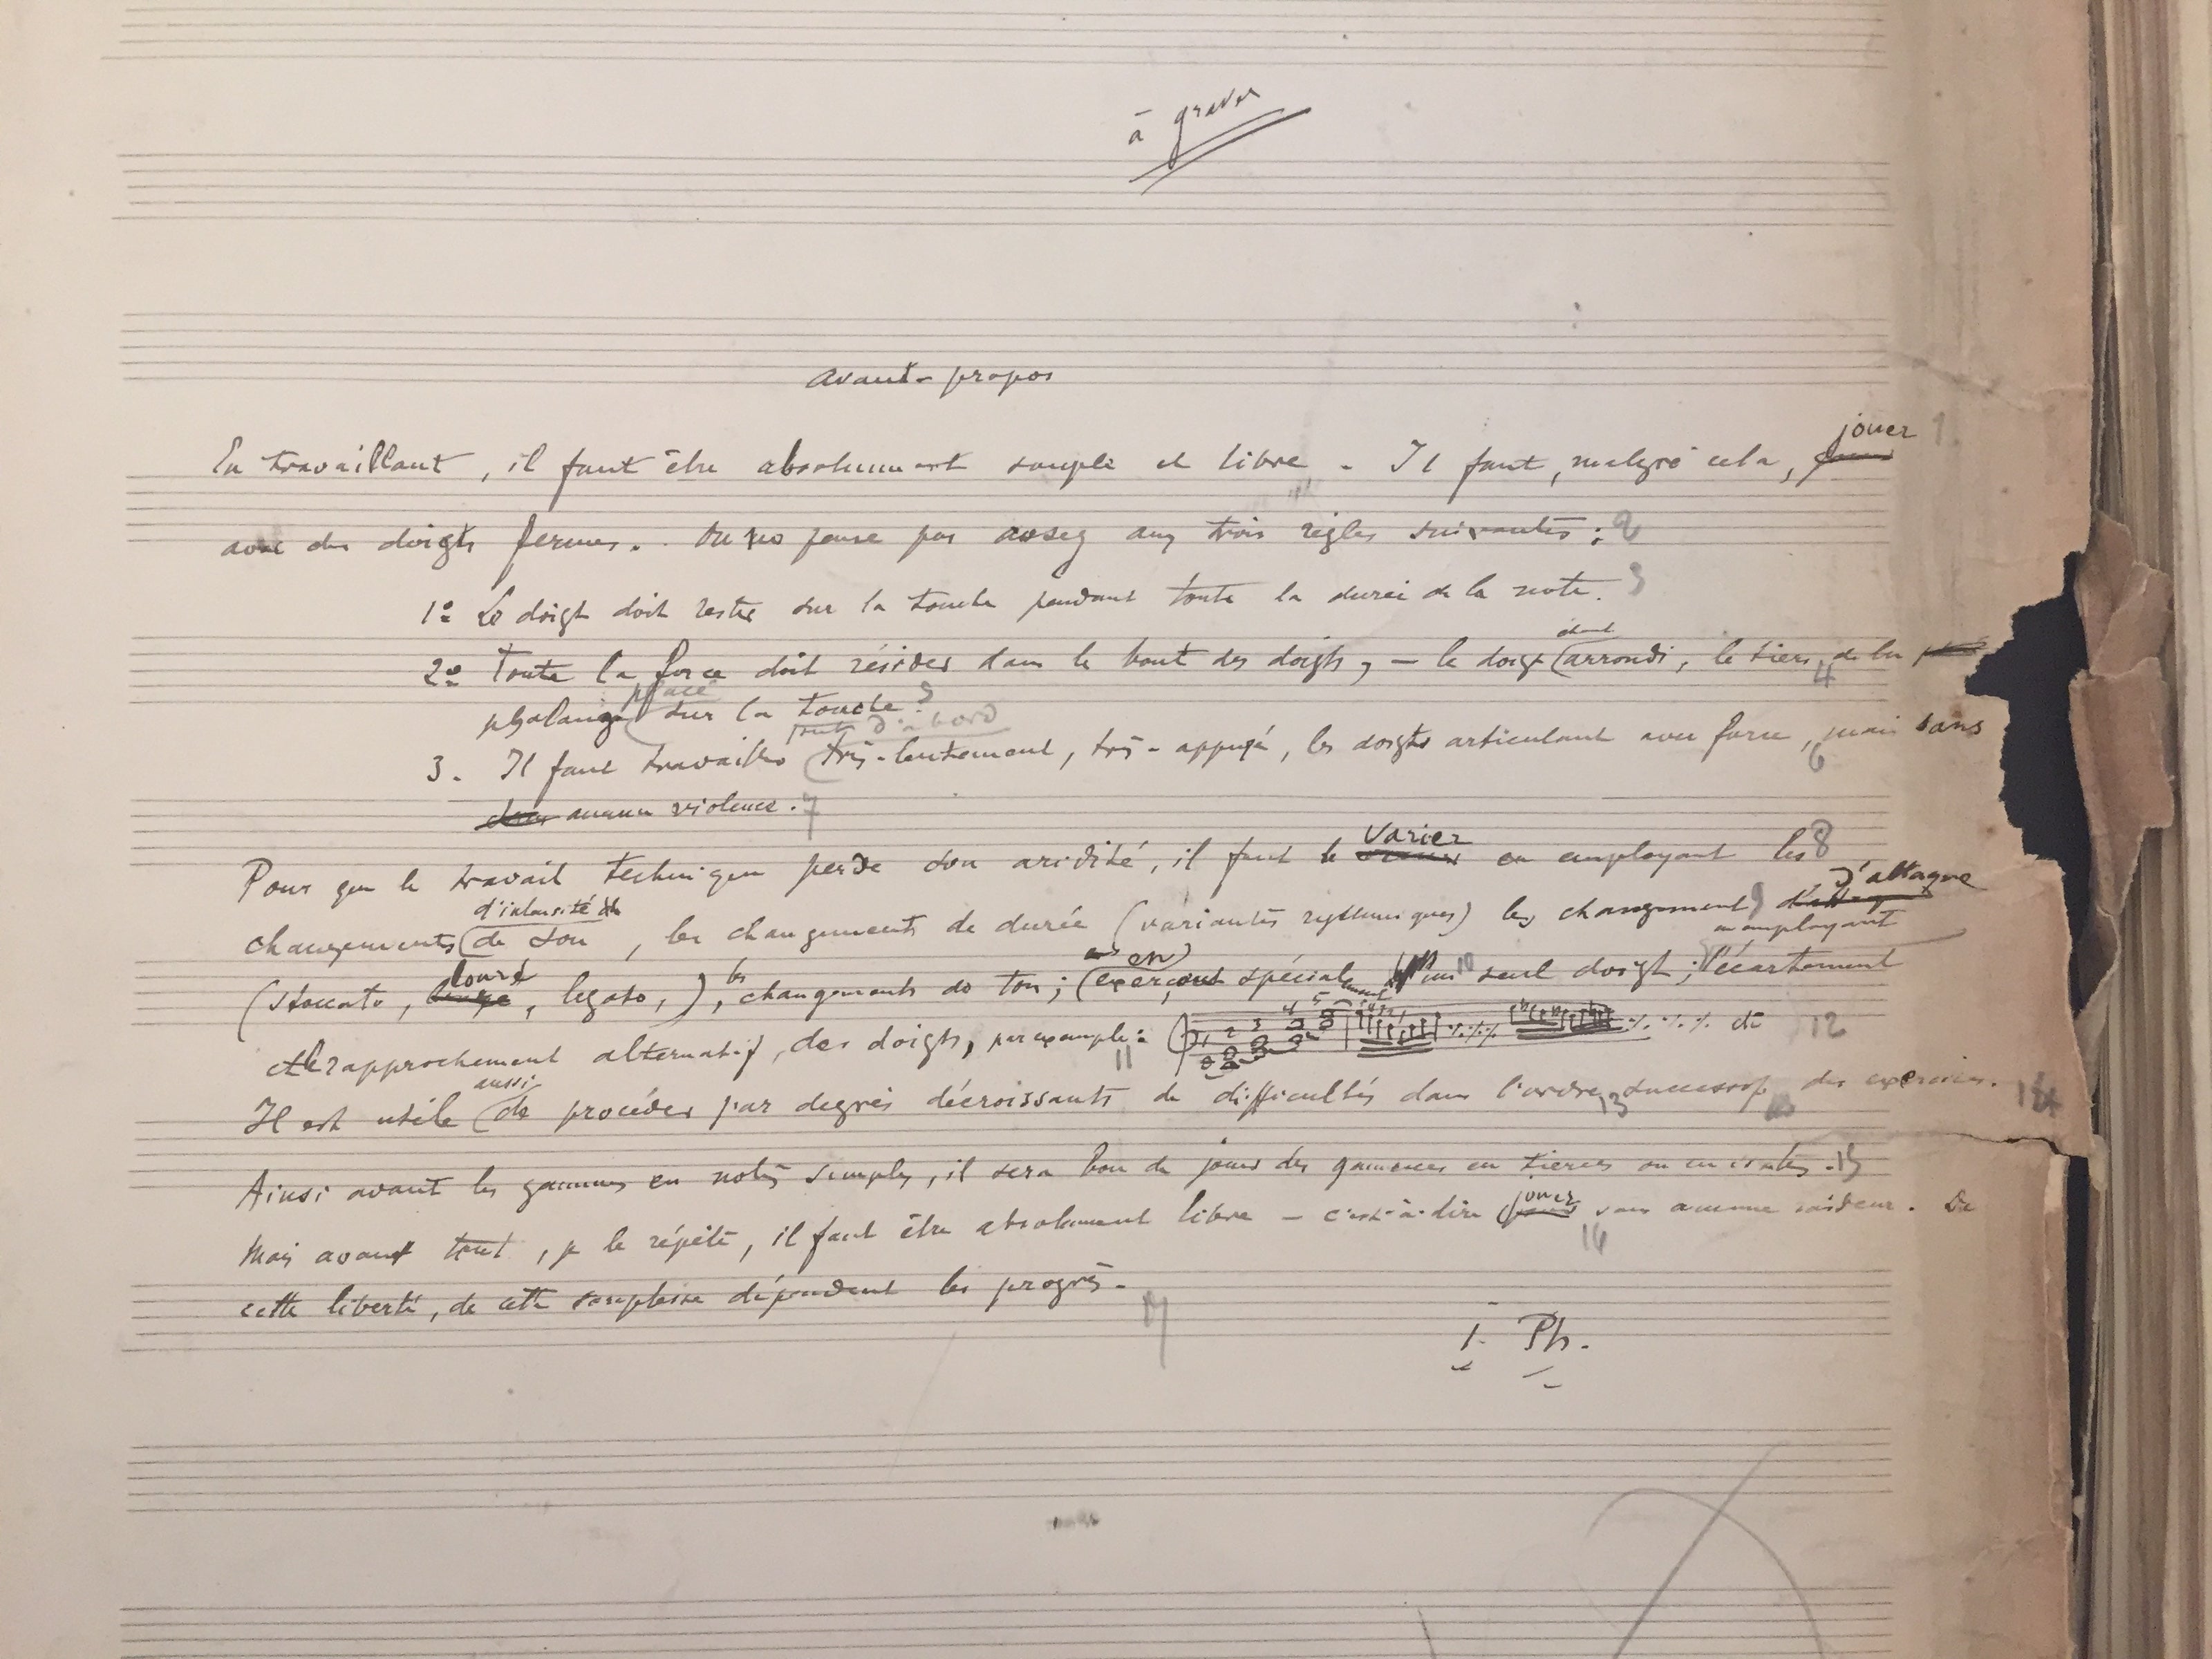 à graver
Avant-propos
jouer 1.
En travaillant, il faut être absolument souple et libre. Il faut, malgré cela,
avec des doigts fermes. On ne pense pas assez aux trois règles suivantes : 2
1º Le doigt doit rester sur la touche pendant toute la durée de la note. 3
étant
2º Toute la force doit résider dans le bout des doigts, — le doigt (arrondi, le tiers de la 4
placé
phalange sur la touche. 5
tout d'abord
3. Il faut travailler (très-lentement, très-appuyé, les doigts articulant avec force, mais sans 6
aucune violence. 7
varier
Pour que le travail technique perde son aridité, il faut le en employant les 8
d'intensité d'attaque
changements (de son, les changements de durée (variantes rythmiques) les changements 9
en employant
lourd les en
(staccato, , legato, ), changements de ton ; (exerçant spécialement un 10 seul doigt ; l'écartement
et le rapprochement alternatif, des doigts, par exemple : 11 1 2 3 4 5 etc 12
aussi
Il est utile (de procéder par degrés décroissants de difficultés dans l'ordre 13 successif des exercices. 14
Ainsi avant les gammes en notes simples, il sera bon de jouer des gammes en tierces ou en sixtes. 15
jouer
Mais avant tout, je le répète, il faut être absolument libre — c'est-à-dire sans aucune raideur. De 16
cette liberté, de cette souplesse dépendent les progrès. 17
I. Ph.